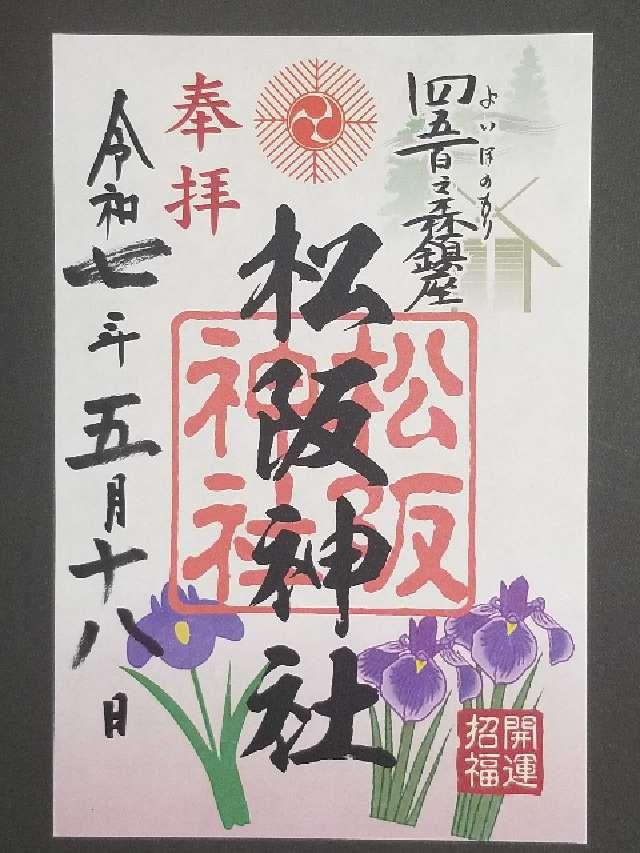 四五百之森鎮座
よいほのもり
奉拝
松阪神社
松阪神社
令和七年五月十八日
開運
招福